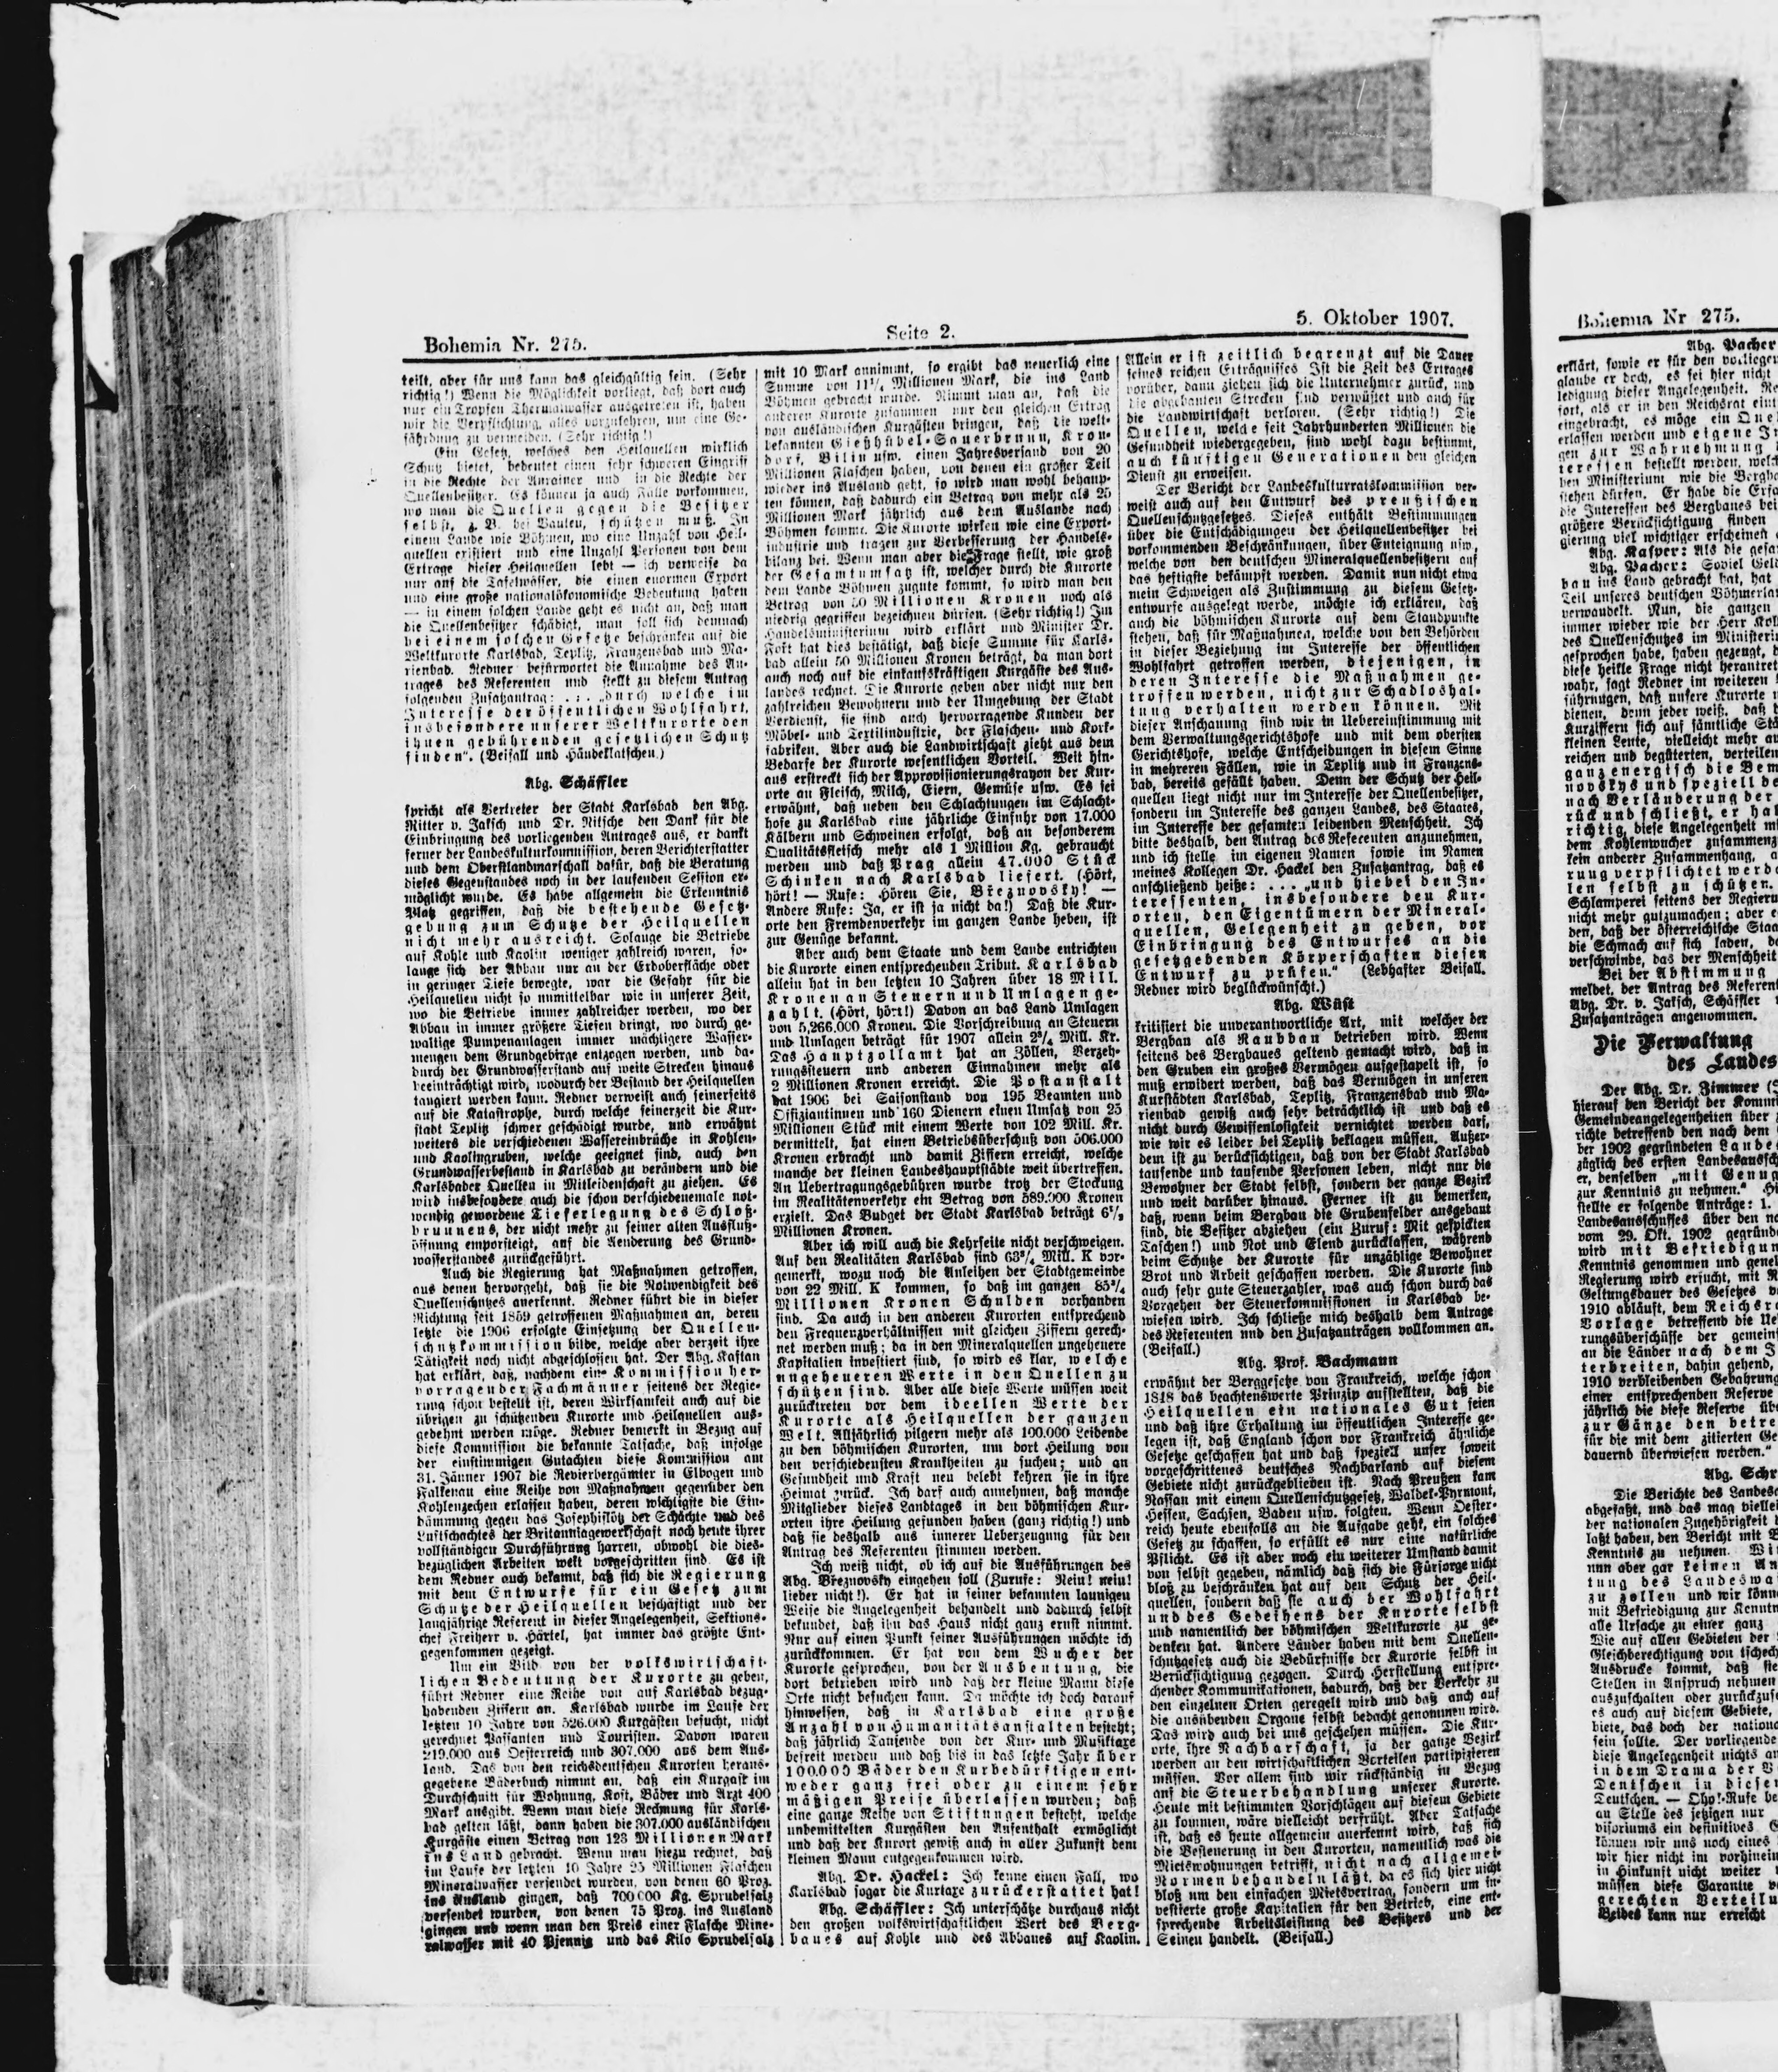 Bohemia Nr. 275.
Seite 2.
5. Oktober 1907.
teilt, aber für uns kann das gleichgültig sein. (Sehr
richtig!) Wenn die Möglichkeit vorliegt, daß dort auch
nur ein Tropfen Thermalwasser ausgetreten ist, haben
wir die Verpflichtung, alles vorzukehren, um eine Ge-
fährdung zu vermeiden. (Sehr richtig!)
Ein Gesetz, welches den Heilquellen wirklich
Schutz bietet, bedeutet einen sehr schweren Eingriff
in die Rechte der Anrainer und in die Rechte der
Quellenbesitzer. Es können ja auch Fälle vorkommen,
wo man die Quellen gegen die Besitzer
selbst, z. B. bei Bauten, schützen muß. In
einem Lande wie Böhmen, wo eine Unzahl von Heil-
quellen existiert und eine Unzahl Personen von dem
Ertrage dieser Heilquellen lebt — ich verweise da
nur auf die Tafelwässer, die einen enormen Export
und eine große nationalökonomische Bedeutung haben
— in einem solchen Lande geht es nicht an, daß man
die Quellenbesitzer schädigt, man soll sich demnach
bei einem solchen Gesetze beschränken auf die
Weltkurorte Karlsbad, Teplitz, Franzensbad und Ma-
rienbad. Redner befürwortet die Annahme des An-
trages des Referenten und stellt zu diesem Antrag
folgenden Zusatzantrag: . . . „durch welche im
Interesse der öffentlichen Wohlfahrt,
insbesondere unserer Weltkurorte den
ihnen gebührenden gesetzlichen Schutz
finden“. (Beifall und Händeklatschen.)
Abg. Schäffler
spricht als Vertreter der Stadt Karlsbad den Abg.
Ritter v. Jaksch und Dr. Nitsche den Dank für die
Einbringung des vorliegenden Antrages aus, er dankt
ferner der Landeskulturkommission, deren Berichterstatter
und dem Oberstlandmarschall dafür, daß die Beratung
dieses Gegenstandes noch in der laufenden Session er-
möglicht wurde. Es habe allgemein die Erkenntnis
Platz gegriffen, daß die bestehende Gesetz-
gebung zum Schutze der Heilquellen
nicht mehr ausreicht. Solange die Betriebe
auf Kohle und Kaolin weniger zahlreich waren, so-
lange sich der Abbau nur an der Erdoberfläche oder
in geringer Tiefe bewegte, war die Gefahr für die
Heilquellen nicht so unmittelbar wie in unserer Zeit,
wo die Betriebe immer zahlreicher werden, wo der
Abbau in immer größere Tiefen dringt, wo durch ge-
waltige Pumpenanlagen immer mächligere Wasser-
mengen dem Grundgebirge entzogen werden, und da-
durch der Grundwasserstand auf weite Strecken hinaus
beeinträchtigt wird, wodurch der Bestand der Heilquellen
tangiert werden kann. Redner verweist auch seinerseits
auf die Katastrophe, durch welche seinerzeit die Kur-
stadt Teplitz schwer geschädigt wurde, und erwähnt
weiters die verschiedenen Wassereinbrüche in Kohlen-
und Kaolingruben, welche geeignet sind, auch den
Grundwasserbestand in Karlsbad zu verändern und die
Karlsbader Quellen in Mitleidenschaft zu ziehen. Es
wird insbesondere auch die schon verschiedenemale not-
wendig gewordene Tieferlegung des Schloß-
brunnens, der nicht mehr zu seiner alten Ausfluß-
öffnung emporsteigt, auf die Aenderung des Grund-
wasserstandes zurückgeführt.
Auch die Regierung hat Maßnahmen getroffen,
aus denen hervorgeht, daß sie die Notwendigkeit des
Quellenschutzes anerkennt. Redner führt die in dieser
Richtung seit 1859 getroffenen Maßnahmen an, deren
letzte die 1906 erfolgte Einsetzung der Quellen-
schutzkommission bilde, welche aber derzeit ihre
Tätigkeit noch nicht abgeschlossen hat. Der Abg. Kaftan
hat erklärt, daß, nachdem eine Kommission her-
vorragender Fachmänner seitens der Regie-
rung schon bestellt ist, deren Wirksamkeit auch auf die
übrigen zu schützenden Kurorte und Heilquellen aus-
gedehnt werden möge. Redner bemerkt in Bezug auf
diese Kommission die bekannte Tatsache, daß infolge
der einstimmigen Gutachten diese Kommission am
31. Jänner 1907 die Revierbergämter in Elbogen und
Falkenau eine Reihe von Maßnahmen gegenüber den
Kohlenzechen erlassen haben, deren wichtigste die Ein-
dämmung gegen das Josephiflötz der Schächte und des
Luftschachtes der Britanniagewerkschaft noch heute ihrer
vollständigen Durchführung harren, obwohl die dies-
bezüglichen Arbeiten weit vorgeschritten sind. Es ist
dem Redner auch bekannt, daß sich die Regierung
mit dem Entwurfe für ein Gesetz zum
Schutze der Heilquellen beschäftigt und der
langjährige Referent in dieser Angelegenheit, Sektions-
chef Freiherr v. Härtel, hat immer das größte Ent-
gegenkommen gezeigt.
Um ein Bild von der volkswirtschaft-
lichen Bedeutung der Kurorte zu geben,
führt Redner eine Reihe von auf Karlsbad bezug-
habenden Ziffern an. Karlsbad wurde im Laufe der
letzten 10 Jahre von 526.000 Kurgästen besucht, nicht
gerechnet Passanten und Touristen. Davon waren
219.000 aus Oesterreich und 307.000 aus dem Aus-
land. Das von den reichsdeutschen Kurorten heraus-
gegebene Bäderbuch nimmt an, daß ein Kurgast im
Durchschnitt für Wohnung, Kost, Bäder und Arzt 400
Mark ausgibt. Wenn man diese Rechnung für Karls-
bad gelten läßt, dann haben die 307.000 ausländischen
Kurgäste einen Betrag von 123 Millionen Mark
ins Land gebracht. Wenn man hiezu rechnet, daß
im Laufe der letzten 10 Jahre 25 Millionen Flaschen
Mineralwasser versendet wurden, von denen 60 Proz.
ins Ausland gingen, daß 700 000 Kg. Sprudelsalz
versendet wurden, von denen 75 Proz. ins Ausland
gingen und wenn man den Preis einer Flasche Mine-
ralwasser mit 40 Pfennig und das Kilo Sprudelsalz
mit 10 Mark annimmt, so ergibt das neuerlich eine
Summe von 11 1/4 Millionen Mark, die ins Land
Böhmen gebracht wurde. Nimmt man an, daß die
anderen Kurorte zusammen nur den gleichen Ertrag
von ausländischen Kurgästen bringen, daß die welt-
bekannten Gießhübel-Sauerbrunn, Kron-
dorf, Bilin usw. einen Jahresversand von 20
Millionen Flaschen haben, von denen ein großer Teil
wieder ins Ausland geht, so wird man wohl behaup-
ten können, daß dadurch ein Betrag von mehr als 25
Millionen Mark jährlich aus dem Auslande nach
Böhmen kommt. Die Kurorte wirken wie eine Export-
industrie und tragen zur Verbesserung der Handels-
bilanz bei. Wenn man aber die Frage stellt, wie groß
der Gesamtumsatz ist, welcher durch die Kurorte
dem Lande Böhmen zugute kommt, so wird man den
Betrag von 50 Millionen Kronen noch als
niedrig gegriffen bezeichnen dürfen. (Sehr richtig!) Im
Handelsministerium wird erklärt und Minister Dr.
Fořt hat dies bestätigt, daß diese Summe für Karls-
bad allein 50 Millionen Kronen beträgt, da man dort
auch noch auf die einkaufskräftigen Kurgäste des Aus-
landes rechnet. Die Kurorte geben aber nicht nur den
zahlreichen Bewohnern und der Umgebung der Stadt
Verdienst, sie sind auch hervorragende Kunden der
Möbel- und Textilindustrie, der Flaschen- und Kork-
fabriken. Aber auch die Landwirtschaft zieht aus dem
Bedarfe der Kurorte wesentlichen Vorteil. Weit hin-
aus erstreckt sich der Approvisionierungsrayon der Kur-
orte an Fleisch, Milch, Eiern, Gemüse usw. Es sei
erwähnt, daß neben den Schlachtungen im Schlacht-
hofe zu Karlsbad eine jährliche Einfuhr von 17.000
Kälbern und Schweinen erfolgt, daß an besonderem
Qualitätsfleisch mehr als 1 Million Kg. gebraucht
werden und daß Prag allein 47.000 Stück
Schinken nach Karlsbad liefert. (Hört,
hört! — Rufe: Hören Sie, Březnovsky! —
Andere Rufe: Ja, er ist ja nicht da!) Daß die Kur-
orte den Fremdenverkehr im ganzen Lande heben, ist
zur Genüge bekannt.
Aber auch dem Staate und dem Lande entrichten
die Kurorte einen entsprechenden Tribut. Karlsbad
allein hat in den letzten 10 Jahren über 18 Mill.
Kronen an Steuern und Umlagen ge-
zahlt. (Hört, hört!) Davon an das Land Umlagen
von 5,266.000 Kronen. Die Vorschreibung an Steuern
und Umlagen beträgt für 1907 allein 2 3/4 Mill. Kr.
Das Hauptzollamt hat an Zöllen, Verzeh-
rungssteuern und anderen Einnahmen mehr als
2 Millionen Kronen erreicht. Die Postanstalt
hat 1906 bei Saisonstand von 195 Beamten und
Offiziantinnen und 160 Dienern einen Umsatz von 25
Millionen Stück mit einem Werte von 102 Mill. Kr.
vermittelt, hat einen Betriebsüberschuß von 506.000
Kronen erbracht und damit Ziffern erreicht, welche
manche der kleinen Landeshauptstädte weit übertreffen.
An Uebertragungsgebühren wurde trotz der Stockung
im Realitätenverkehr ein Betrag von 589.000 Kronen
erzielt. Das Budget der Stadt Karlsbad beträgt 6 1/2
Millionen Kronen.
Aber ich will auch die Kehrseite nicht verschweigen.
Auf den Realitäten Karlsbad sind 63 3/4 Mill. K vor-
gemerkt, wozu noch die Anleihen der Stadtgemeinde
von 22 Mill. K kommen, so daß im ganzen 85 3/4
Millionen Kronen Schulden vorhanden
sind. Da auch in den anderen Kurorten entsprechend
den Frequenzverhältnissen mit gleichen Ziffern gerech-
net werden muß; da in den Mineralquellen ungeheuere
Kapitalien investiert sind, so wird es klar, welche
ungeheueren Werte in den Quellen zu
schützen sind. Aber alle diese Werte müssen weit
zurücktreten vor dem ideellen Werte der
Kurorte als Heilquellen der ganzen
Welt. Alljährlich pilgern mehr als 100.000 Leidende
zu den böhmischen Kurorten, um dort Heilung von
den verschiedensten Krankheiten zu suchen; und an
Gesundheit und Kraft neu belebt kehren sie in ihre
Heimat zurück. Ich darf auch annehmen, daß manche
Mitglieder dieses Landtages in den böhmischen Kur-
orten ihre Heilung gefunden haben (ganz richtig!) und
daß sie deshalb aus innerer Ueberzeugung für den
Antrag des Referenten stimmen werden.
Ich weiß nicht, ob ich auf die Ausführungen des
Abg. Březnovsky eingehen soll (Zurufe: Nein! nein!
lieber nicht!). Er hat in seiner bekannten launigen
Weise die Angelegenheit behandelt und dadurch selbst
bekundet, daß ihn das Haus nicht ganz ernst nimmt.
Nur auf einen Punkt seiner Ausführungen möchte ich
zurückkommen. Er hat von dem Wucher der
Kurorte gesprochen, von der Ausbeutung, die
dort betrieben wird und daß der kleine Mann diese
Orte nicht besuchen kann. Da möchte ich doch darauf
hinweisen, daß in Karlsbad eine große
Anzahl von Humanitätsanstalten besteht;
daß jährlich Tausende von der Kur- und Musiktaxe
befreit werden und daß bis in das letzte Jahr über
100.000 Bäder den Kurbedürftigen ent-
weder ganz frei oder zu einem sehr
mäßigen Preise überlassen wurden; daß
eine ganze Reihe von Stiftungen besteht, welche
unbemittelten Kurgästen den Aufenthalt ermöglicht
und daß der Kurort gewiß auch in aller Zukunft dem
kleinen Mann entgegenkommen wird.
Abg. Dr. Hackel: Ich kenne einen Fall, wo
Karlsbad sogar die Kurtaxe zurückerstattet hat!
Abg. Schäffler: Ich unterschätze durchaus nicht
den großen volkswirtschaftlichen Wert des Berg-
baues auf Kohle und des Abbaues auf Kaolin.
Allein er ist zeitlich begrenzt auf die Dauer
seines reichen Erträgnisses. Ist die Zeit des Ertrages
vorüber, dann ziehen sich die Unternehmer zurück, und
die abgebauten Strecken sind verwüstet und auch für
die Landwirtschaft verloren. (Sehr richtig!) Die
Quellen, welche seit Jahrhunderten Millionen die
Gesundheit wiedergegeben, sind wohl dazu bestimmt,
auch künftigen Generationen den gleichen
Dienst zu erweisen.
Der Bericht der Landeskulturratskommission ver-
weist auch auf den Entwurf des preußischen
Quellenschutzgesetzes. Dieses enthält Bestimmungen
über die Entschädigungen der Heilquellenbesitzer bei
vorkommenden Beschränkungen, über Enteignung usw.,
welche von den deutschen Mineralquellenbesitzern auf
das heftigste bekämpft werden. Damit nun nicht etwa
mein Schweigen als Zustimmung zu diesem Gesetz-
entwurfe ausgelegt werde, möchte ich erklären, daß
auch die böhmischen Kurorte auf dem Standpunkte
stehen, daß für Maßnahmen, welche von den Behörden
in dieser Beziehung im Interesse der öffentlichen
Wohlfahrt getroffen werden, diejenigen, in
deren Interesse die Maßnahmen ge-
troffen werden, nicht zur Schadloshal-
tung verhalten werden können. Mit
dieser Anschauung sind wir in Uebereinstimmung mit
dem Verwaltungsgerichtshofe und mit dem obersten
Gerichtshofe, welche Entscheidungen in diesem Sinne
in mehreren Fällen, wie in Teplitz und in Franzens-
bad, bereits gefällt haben. Denn der Schutz der Heil-
quellen liegt nicht nur im Interesse der Quellenbesitzer,
sondern im Interesse des ganzen Landes, des Staates,
im Interesse der gesamten leidenden Menschheit. Ich
bitte deshalb, den Antrag des Referenten anzunehmen,
und ich stelle im eigenen Namen sowie im Namen
meines Kollegen Dr. Hackel den Zusatzantrag, daß es
anschließend heiße: . . . „und hiebei den In-
teressenten, insbesondere den Kur-
orten, den Eigentümern der Mineral-
quellen, Gelegenheit zu geben, vor
Einbringung des Entwurfes an die
gesetzgebenden Körperschaften diesen
Entwurf zu prüfen.“ (Lebhafter Beifall.
Redner wird beglückwünscht.)
Abg. Wüst
kritisiert die unverantwortliche Art, mit welcher der
Bergbau als Raubbau betrieben wird. Wenn
seitens des Bergbaues geltend gemacht wird, daß in
den Gruben ein großes Vermögen aufgestapelt ist, so
muß erwidert werden, daß das Vermögen in unseren
Kurstädten Karlsbad, Teplitz, Franzensbad und Ma-
rienbad gewiß auch sehr beträchtlich ist und daß es
nicht durch Gewissenlosigkeit vernichtet werden darf,
wie wir es leider bei Teplitz beklagen müssen. Außer-
dem ist zu berücksichtigen, daß von der Stadt Karlsbad
tausende und tausende Personen leben, nicht nur die
Bewohner der Stadt selbst, sondern der ganze Bezirk
und weit darüber hinaus. Ferner ist zu bemerken,
daß, wenn beim Bergbau die Grubenfelder ausgebaut
sind, die Besitzer abziehen (ein Zuruf: Mit gespickten
Taschen!) und Not und Elend zurücklassen, während
beim Schutze der Kurorte für unzählige Bewohner
Brot und Arbeit geschaffen werden. Die Kurorte sind
auch sehr gute Steuerzahler, was auch schon durch das
Vorgehen der Steuerkommissionen in Karlsbad be-
wiesen wird. Ich schließe mich deshalb dem Antrage
des Referenten und den Zusatzanträgen vollkommen an.
(Beifall.)
Abg. Prof. Bachmann
erwähnt der Berggesetze von Frankreich, welche schon
1818 das beachtenswerte Prinzip aufstellten, daß die
Heilquellen ein nationales Gut seien
und daß ihre Erhaltung im öffentlichen Interesse ge-
legen ist, daß England schon vor Frankreich ähnliche
Gesetze geschaffen hat und daß speziell unser soweit
vorgeschrittenes deutsches Nachbarland auf diesem
Gebiete nicht zurückgeblieben ist. Nach Preußen kam
Nassau mit einem Quellenschutzgesetz, Waldek-Pyrmont,
Hessen, Sachsen, Baden usw. folgten. Wenn Oester-
reich heute ebenfalls an die Aufgabe geht, ein solches
Gesetz zu schaffen, so erfüllt es nur eine natürliche
Pflicht. Es ist aber noch ein weiterer Umstand damit
von selbst gegeben, nämlich daß sich die Fürsorge nicht
bloß zu beschränken hat auf den Schutz der Heil-
quellen, sondern daß sie auch der Wohlfahrt
und des Gedeihens der Kurorte selbst
und namentlich der böhmischen Weltkurorte zu ge-
denken hat. Andere Länder haben mit dem Quellen-
schutzgesetz auch die Bedürfnisse der Kurorte selbst in
Berücksichtigung gezogen. Durch Herstellung entspre-
chender Kommunikationen, dadurch, daß der Verkehr zu
den einzelnen Orten geregelt wird und daß auch auf
die ausübenden Organe selbst bedacht genommen wird.
Das wird auch bei uns geschehen müssen. Die Kur-
orte, ihre Nachbarschaft, ja der ganze Bezirk
werden an den wirtschaftlichen Vorteilen partipizieren
müssen. Vor allem sind wir rückständig in Bezug
auf die Steuerbehandlung unserer Kurorte.
Heute mit bestimmten Vorschlägen auf diesem Gebiete
zu kommen, wäre vielleicht verfrüht. Aber Tatsache
ist, daß es heute allgemein anerkannt wird, daß sich
die Besteuerung in den Kurorten, namentlich was die
Mietswohnungen betrifft, nicht nach allgemei-
Normen behandeln läßt, da es sich hier nicht
bloß um den einfachen Mietsvertrag, sondern um in-
vestierte große Kapitalien für den Betrieb, eine ent-
sprechende Arbeitsleistung des Besitzers und der
Seinen handelt. (Beifall.)
Bohemia Nr 275.
Abg. Pacher
erklärt, sowie er für den vorliegen
glaube er doch, es sei hier nicht
ledigung dieser Angelegenheit. Re
fort, als er in den Reichsrat eint
eingebracht, es möge ein Quel
erlassen werden und eigene In
gen zur Wahrnehmung
teressen bestellt werden, welch
den Ministerium wie die Bergba
stehen dürfen. Er habe die Erfa
die Interessen des Bergbaues bei
größere Berücksichtigung finden
gierung viel wichtiger erscheinen
Abg. Kasper: Als die gesa
Abg. Pacher: Soviel Geld
bau ins Land gebracht hat, hat
Teil unseres deutschen Böhmerlan
verwandelt. Nun, die ganzen
immer wieder wie der Herr Koll
des Quellenschutzes im Ministeriu
gesprochen habe, haben gezeugt, d
diese heikle Frage nicht herantret
wahr, sagt Redner im weiteren
führungen, daß unsere Kurorte n
dienen, denn jeder weiß, daß d
Kurziffern sich auf sämtliche Stä
kleinen Leute, vielleicht mehr au
reichen und begüterten, verteilen
ganz energisch die Bem
novskys und speziell de
nach Verländerung der
rück und schließt, er hal
richtig, diese Angelegenheit mi
dem Kohlenwucher zusammenz
kein anderer Zusammenhang, a
rung verpflichtet werde
len selbst zu schützen.
Schlamperei seitens der Regieru
nicht mehr gutzumachen; aber e
den, daß der österreichische Staa
die Schmach auf sich laden, da
verschwinde, das der Menschheit
Bei der Abstimmung
meldet, der Antrag des Referent
Abg. Dr. v. Jaksch, Schäffler
Zusatzanträgen angenommen.
Die Verwaltung
des Landes
Der Abg. Dr. Zimmer (S
hierauf den Bericht der Kommi
Gemeindeangelegenheiten über
richte betreffend den nach dem
ber 1902 gegründeten Lande
züglich des ersten Landesaussch
er, denselben „mit Genug
zur Kenntnis zu nehmen.“ Hi
stellte er folgende Anträge: 1.
Landesausschusses über den na
vom 29. Okt. 1902 gegründ
wird mit Befriedigun
Kenntnis genommen und geneh
Regierung wird ersucht, mit R
Geltungsdauer des Gesetzes vo
1910 abläuft, dem Reichsra
Vorlage betreffend die Ue
rungsüberschüsse der gemeins
an die Länder nach dem J
terbreiten, dahin gehend,
1910 verbleibenden Gebahrung
einer entsprechenden Reserve
jährlich die diese Reserve übe
zur Gänze den betre
für die mit dem zitierten Ge
dauernd überwiesen werden.“
Abg. Schr
Die Berichte des Landesa
abgefaßt, und das mag viellei
der nationalen Zugehörigkeit d
laßt haben, den Bericht mit B
Kenntnis zu nehmen. Wi
nun aber gar keinen An
tung des Landeswa
zu zollen und wir könn
mit Befriedigung zur Kenntn
alle Ursache zu einer ganz
Wie auf allen Gebieten der
Gleichberechtigung von tschech
Ausdrucke kommt, daß sie
Stellen in Anspruch nehmen
auszuschalten oder zurückzuse
es auch auf diesem Gebiete,
biete, das doch der nationa
sein sollte. Der vorliegende
diese Angelegenheit nichts an
in dem Drama der V
Deutschen in diesem
Teutschen. — Oho!-Rufe be
an Stelle des jetzigen nur
visoriums ein definitives G
können wir uns noch eines
wir hier nicht im vorhinein
in Hinkunft nicht weiter
müssen diese Garantie v
gerechten Verteilu
Beides kann nur erreicht